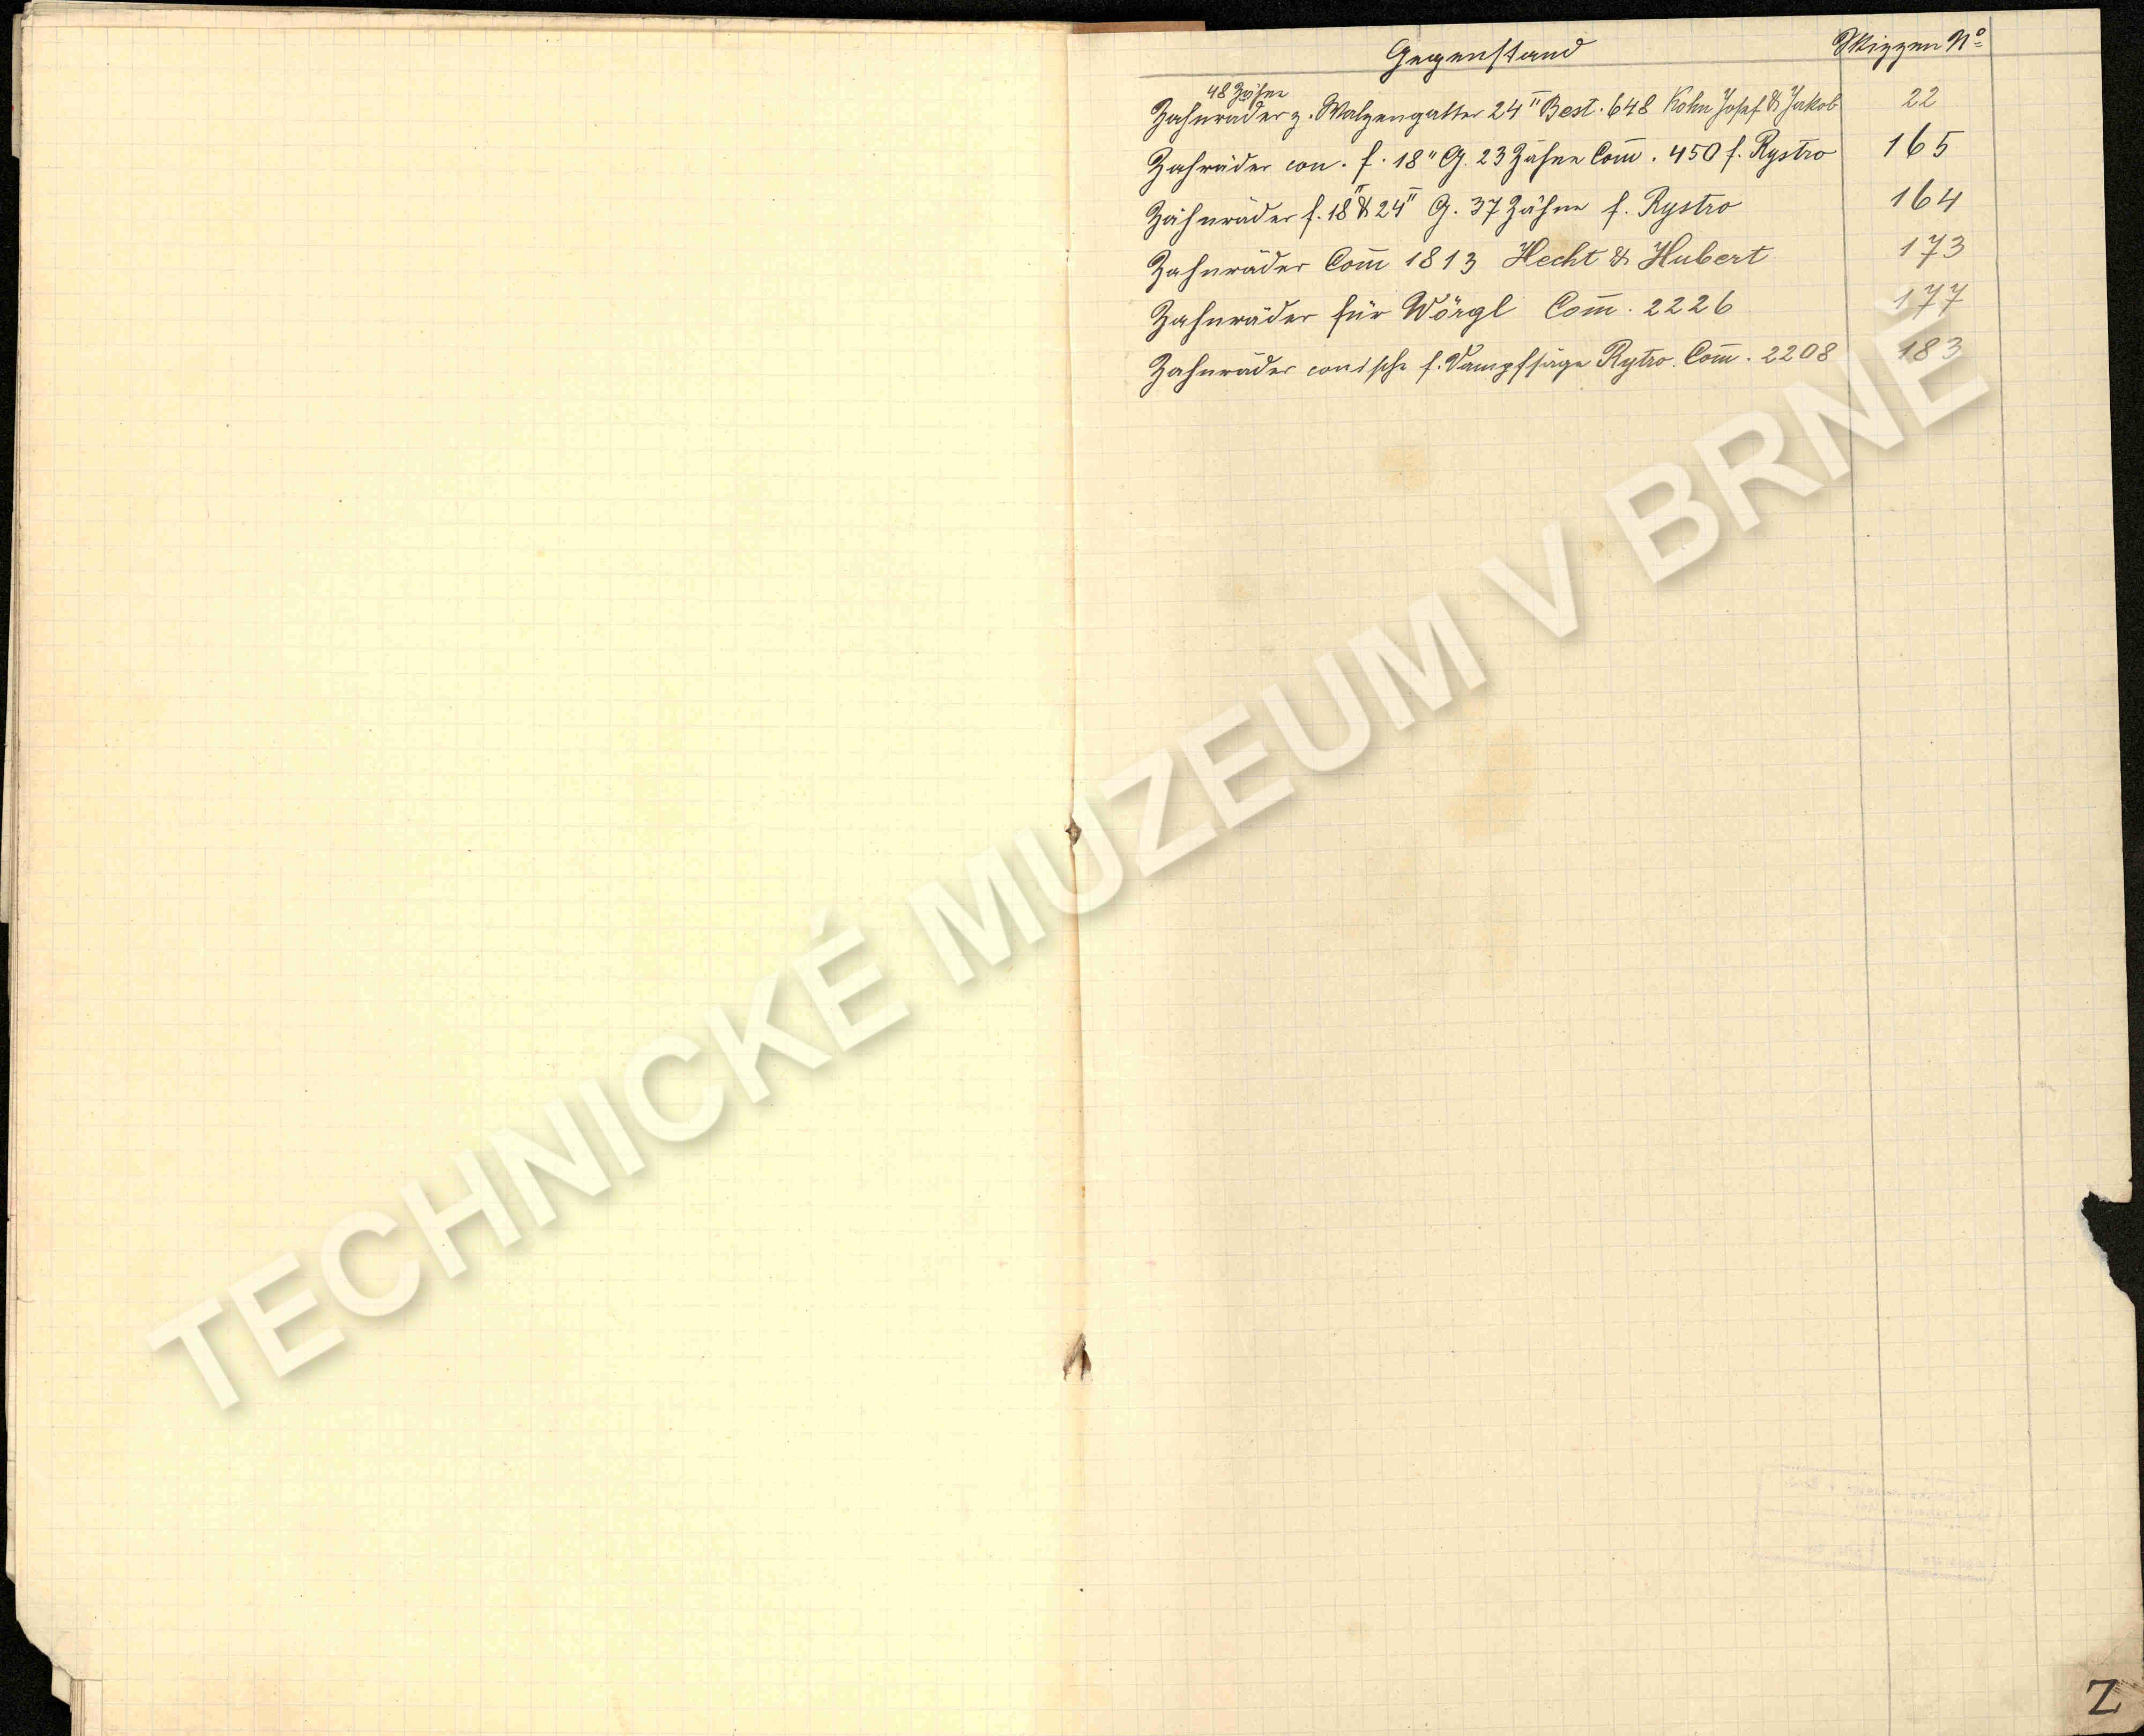 Gegenstand Skizzen No
48 Zähne
Zahnräder z. Walzengatter 24" Best. 648 Kohn Josef & Jakob 22
Zahräder con. f. 18" G. 23 Zähne Com̄. 450 f. Rystro 165
Zahnräder f. 18" & 24" G. 37 Zähne f. Rystro 164
Zahnräder Com̄ 1813 Hecht & Hubert 173
Zahnräder für Wörgl Com̄. 2226 177
Zahnräder conische f. Dampfsäge Rytro. Com̄. 2208 183
TECHNICKÉ MUZEUM V BRNĚ
Z